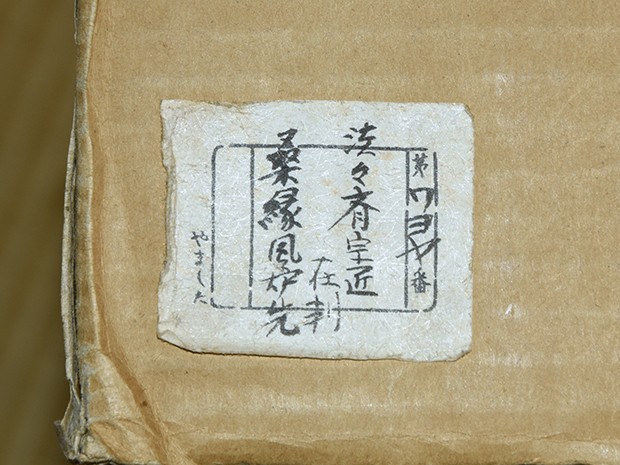 第ワヨヤ番
淡々斎宗匠
在判
桑縁風炉先
やました